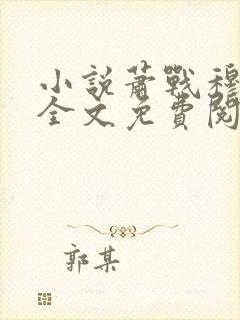 小說蕭戰穆
全文免費閱
郭某